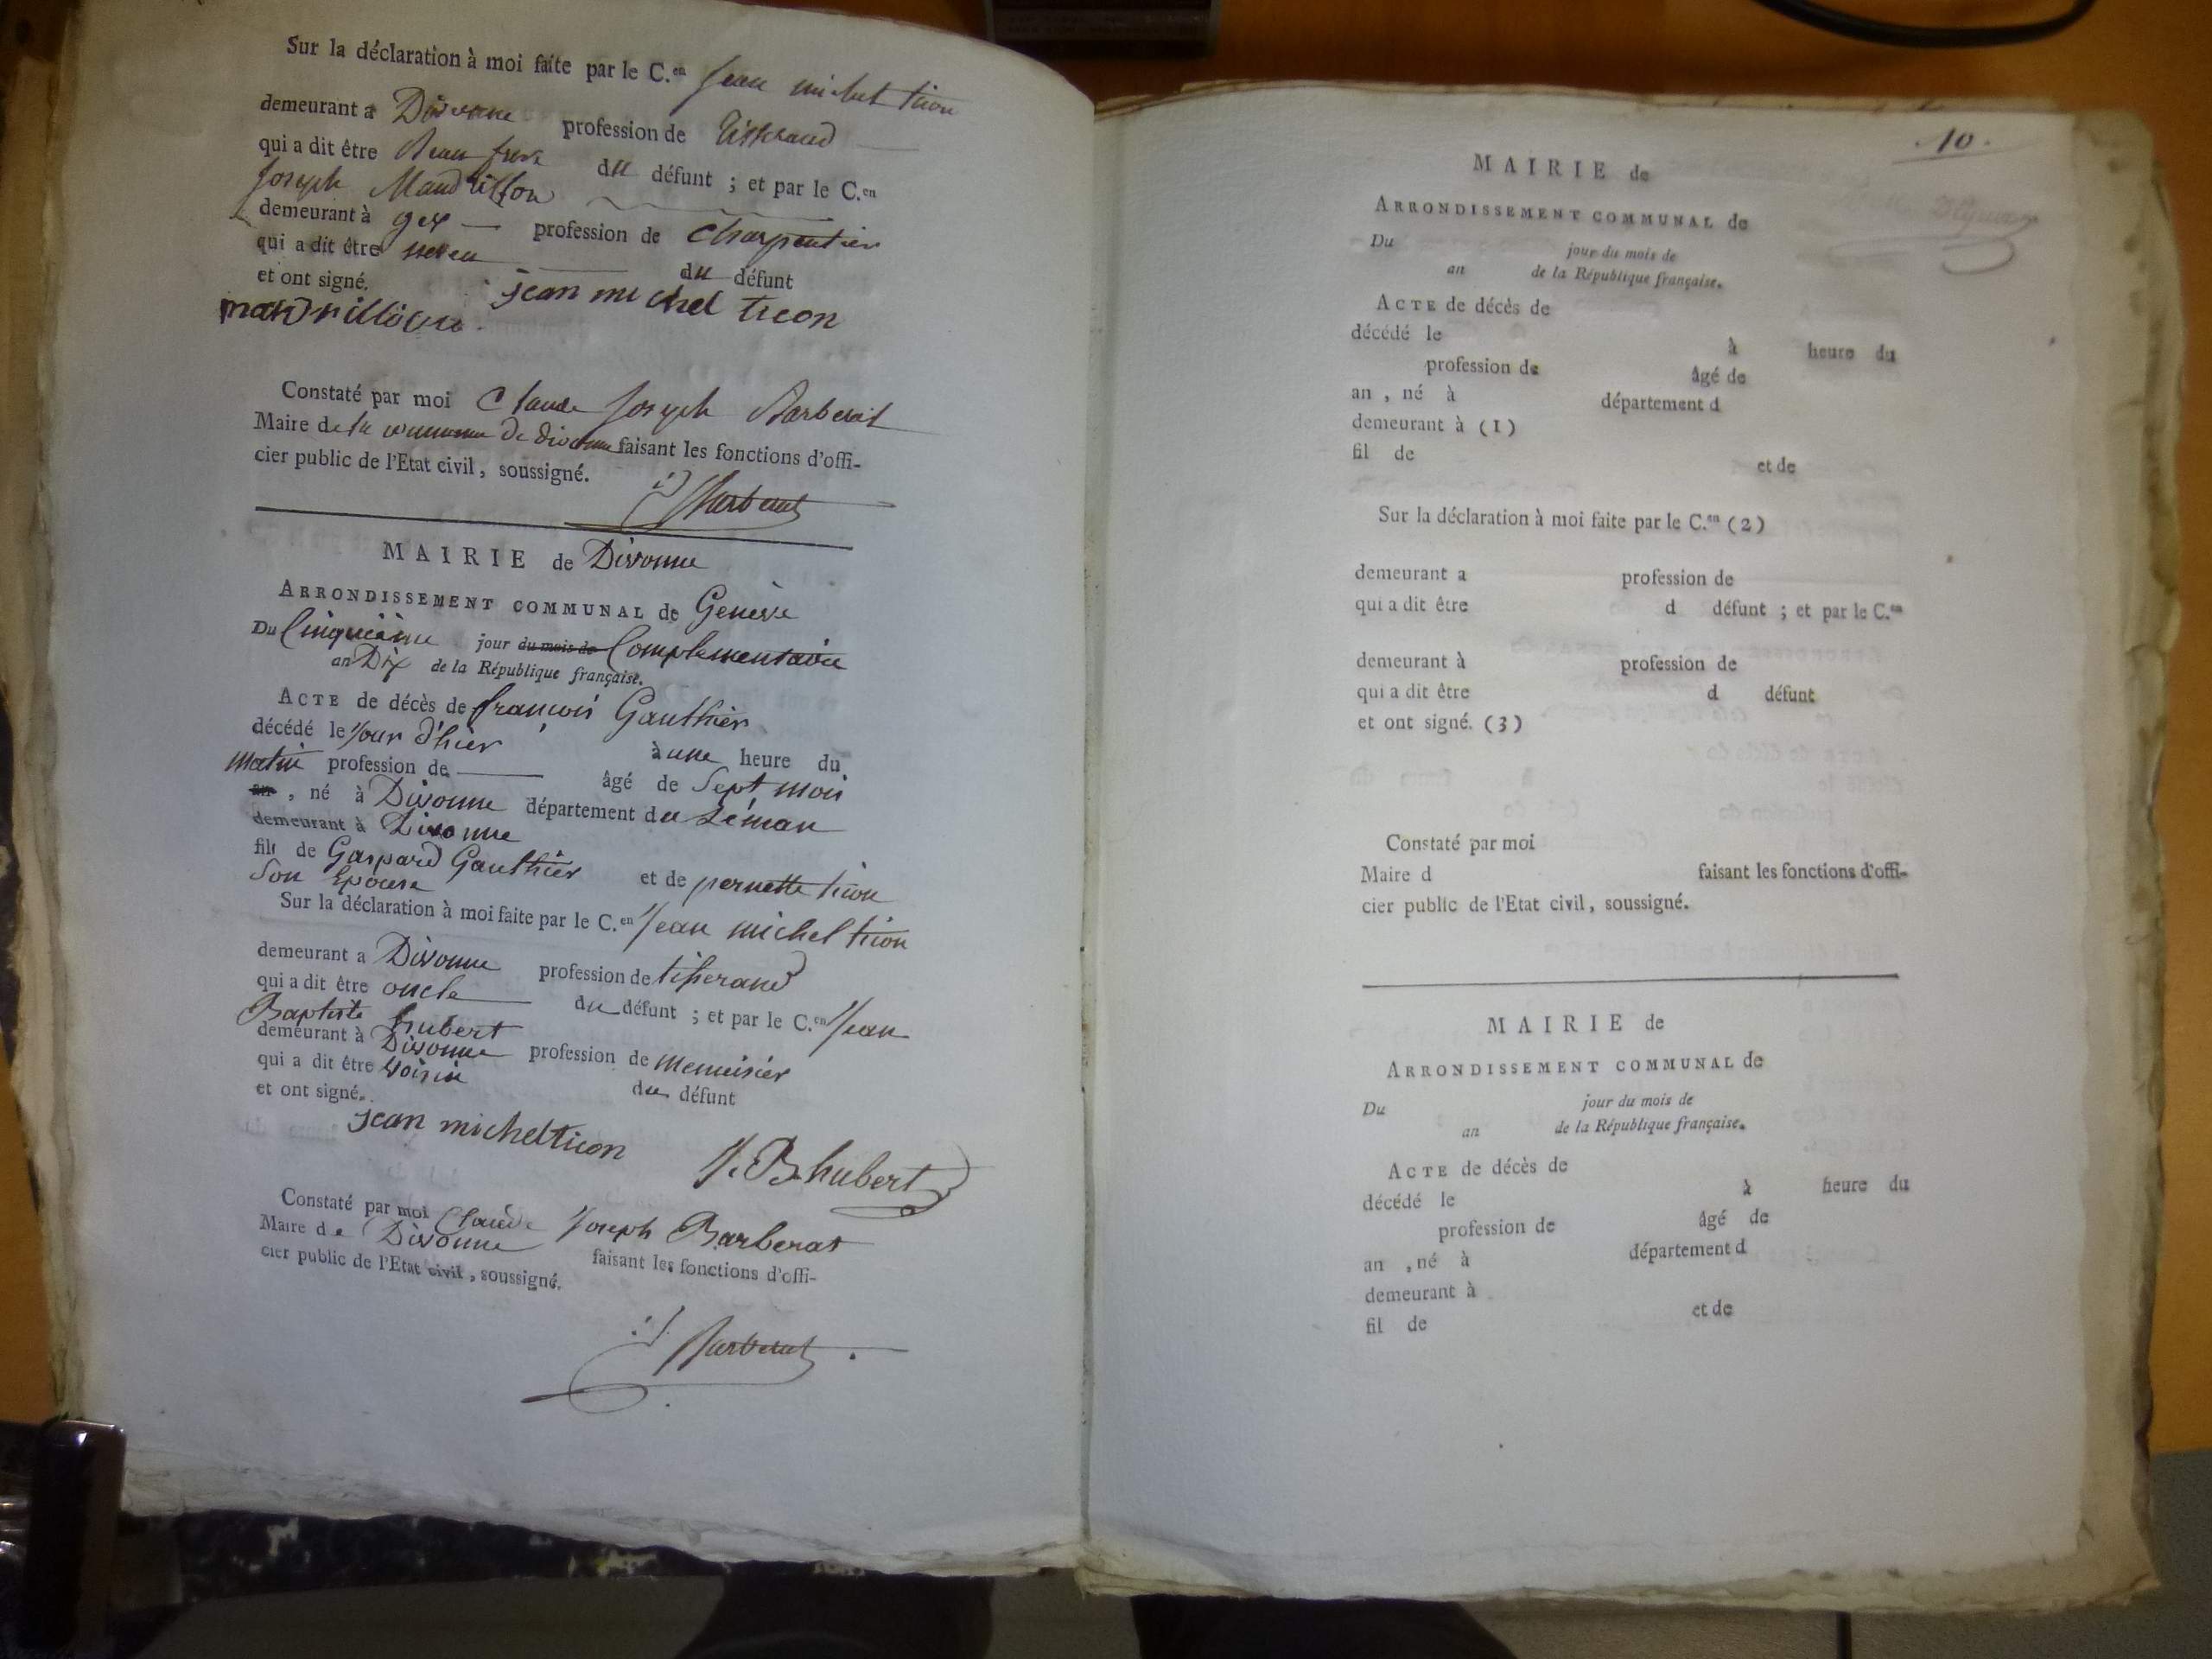 Sur la déclaration à moi faite par le C.en Jean michel ticon
demeurant a Divonne profession de tisserand
qui a dit être Beau frere du défunt ; et par le C.en
Joseph Mandrillon
demeurant à gex profession de Charpentier
qui a dit être neveu du défunt
et ont signé. jean michel ticon
mandrillion
Constaté par moi Claude Joseph Barberat
Maire de la commune de divonne faisant les fonctions d'offi-
cier public de l'Etat civil, soussigné.
Barberat
MAIRIE de Divonne
ARRONDISSEMENT COMMUNAL de Genève
Du Cinquième jour du mois de Complementaire
an Dix de la République française.
ACTE de décès de françois Gauthier
décédé le Jour d'hier à une heure du
matin profession de âgé de Sept mois
an, né à Divonne département du Léman
demeurant à Divonne
fils de Gaspard Gauthier et de pernette ticon
Son Epouse
Sur la déclaration à moi faite par le C.en Jean michel ticon
demeurant a Divonne profession de tisserand
qui a dit être oncle du défunt ; et par le C.en Jean
Baptiste hubert
demeurant à Divonne profession de menuisier
qui a dit être voisin du défunt
et ont signé.
jean michel ticon
J. B hubert
Constaté par moi Claude Joseph Barberat
Maire de Divonne faisant les fonctions d'offi-
cier public de l'Etat civil, soussigné.
Barberat
10.
MAIRIE de
ARRONDISSEMENT COMMUNAL de
Du jour du mois de
an de la République française.
ACTE de décès de
décédé le à heure du
profession de âgé de
an, né à département d
demeurant à (1)
fil de et de
Sur la déclaration à moi faite par le C.en (2)
demeurant a profession de
qui a dit être d défunt ; et par le C.en
demeurant à profession de
qui a dit être d défunt
et ont signé. (3)
Constaté par moi
Maire d faisant les fonctions d'offi-
cier public de l'Etat civil, soussigné.
MAIRIE de
ARRONDISSEMENT COMMUNAL de
Du jour du mois de
an de la République française.
ACTE de décès de
décédé le à heure du
profession de âgé de
an, né à département d
demeurant à
fil de et de